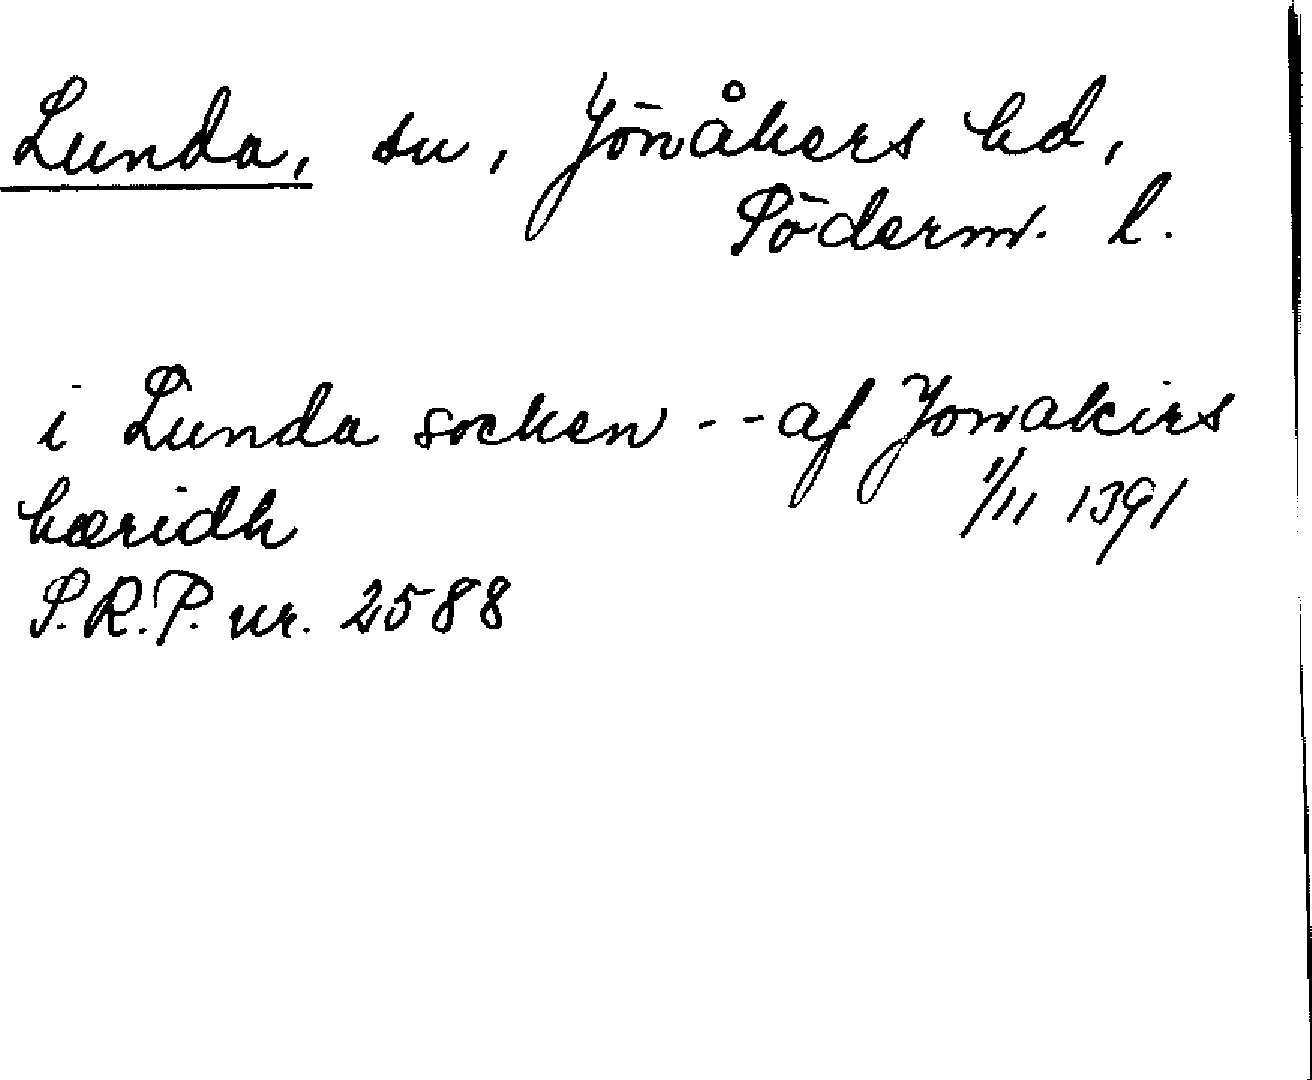 Lunda, sn, Jönåkers hd,
Söderm. l.
i Lunda socken -- af Jonakirs
hæridh
1/11 1391
S.R.P. nr. 2588